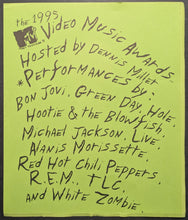 the 1995
MTV Video Music Awards.
MUSIC TELEVISION
Hosted by Dennis Miller
*Performances by:
Bon Jovi, Green Day, Hole,
Hootie & the Blowfish,
Michael Jackson, Live,
Alanis Morissette,
Red Hot Chili Peppers,
R.E.M., TLC,
and White Zombie.